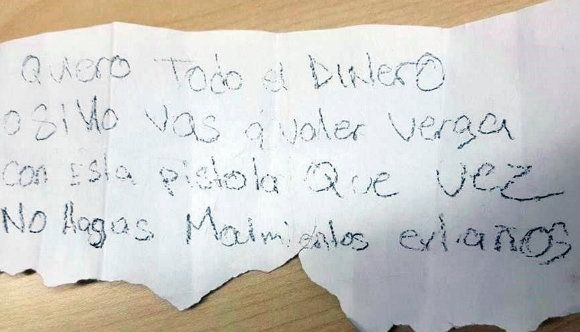 QUIERO TODO el DINERO
O SI NO VAS a valer verga
con Esta pistola Que vez
NO Hagas Malmientos extraños